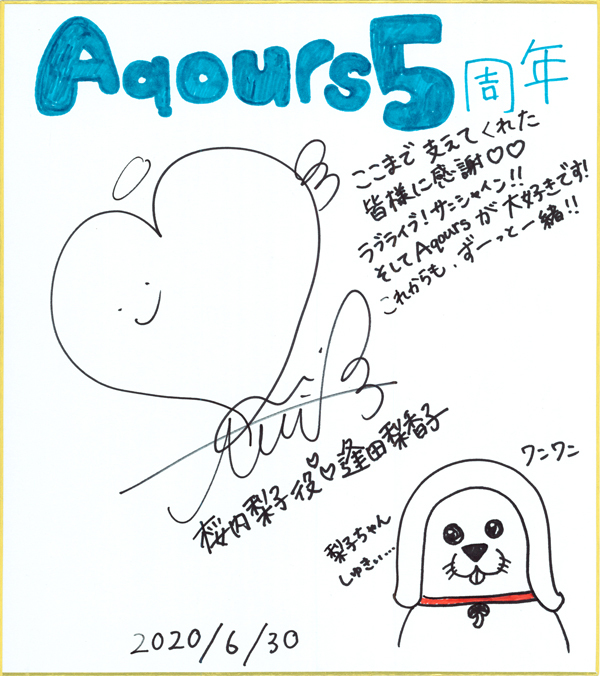 Aqours5周年
ここまで支えてくれた
皆様に感謝♡♡
ラブライブ!サンシャイン!!
そしてAqoursが大好きです!
これからも、ずーっと一緒!!
桜内梨子役♡♡逢田梨香子
ワンワン
梨子ちゃん
しゅきぃ…
2020/6/30